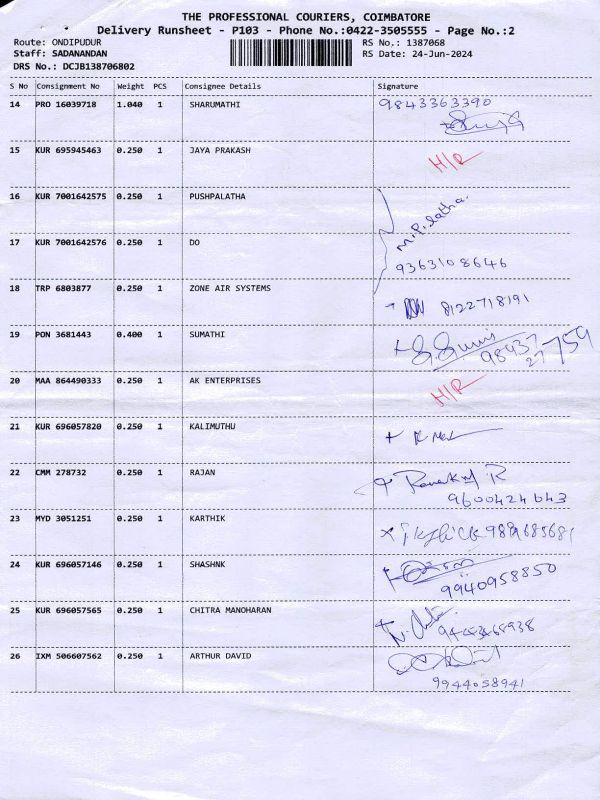 THE PROFESSIONAL COURIERS, COIMBATORE
Delivery Runsheet - P103 - Phone No.:0422-3505555 - Page No.:2
Route: ONDIPUDUR RS No.: 1387068
Staff: SADANANDAN RS Date: 24-Jun-2024
DRS No.: DCJB138706802
S No Consignment No Weight PCS Consignee Details Signature
14 PRO 16039718 1.040 1 SHARUMATHI 9843363390
15 KUR 695945463 0.250 1 JAYA PRAKASH H/R
16 KUR 7001642575 0.250 1 PUSHPALATHA
M.P.latha.
17 KUR 7001642576 0.250 1 DO
9363108646
18 TRP 6803877 0.250 1 ZONE AIR SYSTEMS 8122718191
19 PON 3681443 0.400 1 SUMATHI 98437
27759
20 MAA 864490333 0.250 1 AK ENTERPRISES H/R
21 KUR 696057820 0.250 1 KALIMUTHU
22 CMM 278732 0.250 1 RAJAN
9600424643
23 MYD 3051251 0.250 1 KARTHIK
24 KUR 696057146 0.250 1 SHASHNK
9940958850
25 KUR 696057565 0.250 1 CHITRA MANOHARAN
26 IXM 506607562 0.250 1 ARTHUR DAVID
9944058941